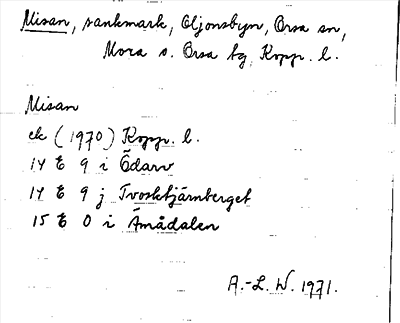 Misan, sankmark, Oljonsbyn, Orsa sn,
Mora o. Orsa tg, Kopp. l.
Misan
ek (1970) Kopp. l.
14 E 9 i Ödarv
14 E 9 j Tvosktjärnberget
15 E 0 i Åmådalen
A.-L. W. 1971.